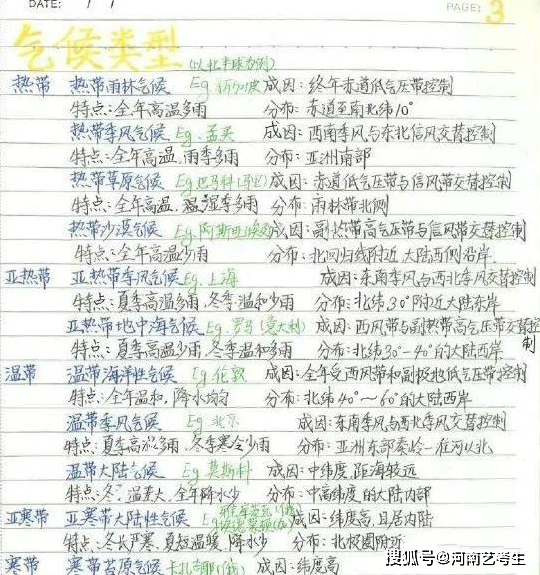 DATE: / /
PAGE: 3
气候类型 (以北半球为例)
热带 热带雨林气候 Eg.新加坡 成因:终年赤道低气压带控制
特点:全年高温多雨 分布:赤道至南北纬10°
热带季风气候 Eg.孟买 成因:西南季风与东北信风交替控制
特点:全年高温,雨季多雨 分布:亚洲南部
热带草原气候 Eg.巴马科 成因:赤道低气压带与信风带交替控制
特点:全年高温,湿季多雨 分布:雨林带北侧
热带沙漠气候 Eg.阿斯旺 成因:副热带高气压带与信风带交替控制
特点:全年高温少雨 分布:北回归线附近大陆西侧沿岸.
亚热带 亚热带季风气候 Eg.上海 成因:东南季风与西北季风交替控制
特点:夏季高温多雨.冬季温和少雨 分布:北纬30°附近大陆东岸
亚热带地中海气候 Eg.罗马(意大利) 成因:西风带与副热带高气压带交替控制
特点:夏季高温少雨.冬季温和多雨 分布:北纬30°-40°的大陆西岸
温带 温带海洋性气候 Eg.伦敦 成因:全年受西风带和副极地低气压带控制
特点:全年温和,降水均匀 分布:北纬40°~60°的大陆西岸
温带季风气候 Eg.北京 成因:东南季风与西北季风交替控制
特点:夏季高温多雨.冬季寒冷少雨 分布:亚洲东部秦岭-淮河以北
温带大陆气候 Eg.莫斯科 成因:中纬度,距海较远
特点:冬 温差大,全年降水少 分布:中高纬度的大陆内部
亚寒带 亚寒带大陆性气候 成因:纬度高,且居内陆
特点:冬长严寒,夏短温暖,降水少 分布:北极圈附近
寒带 寒带苔原气候 成因:纬度高
搜狐号@河南艺考生